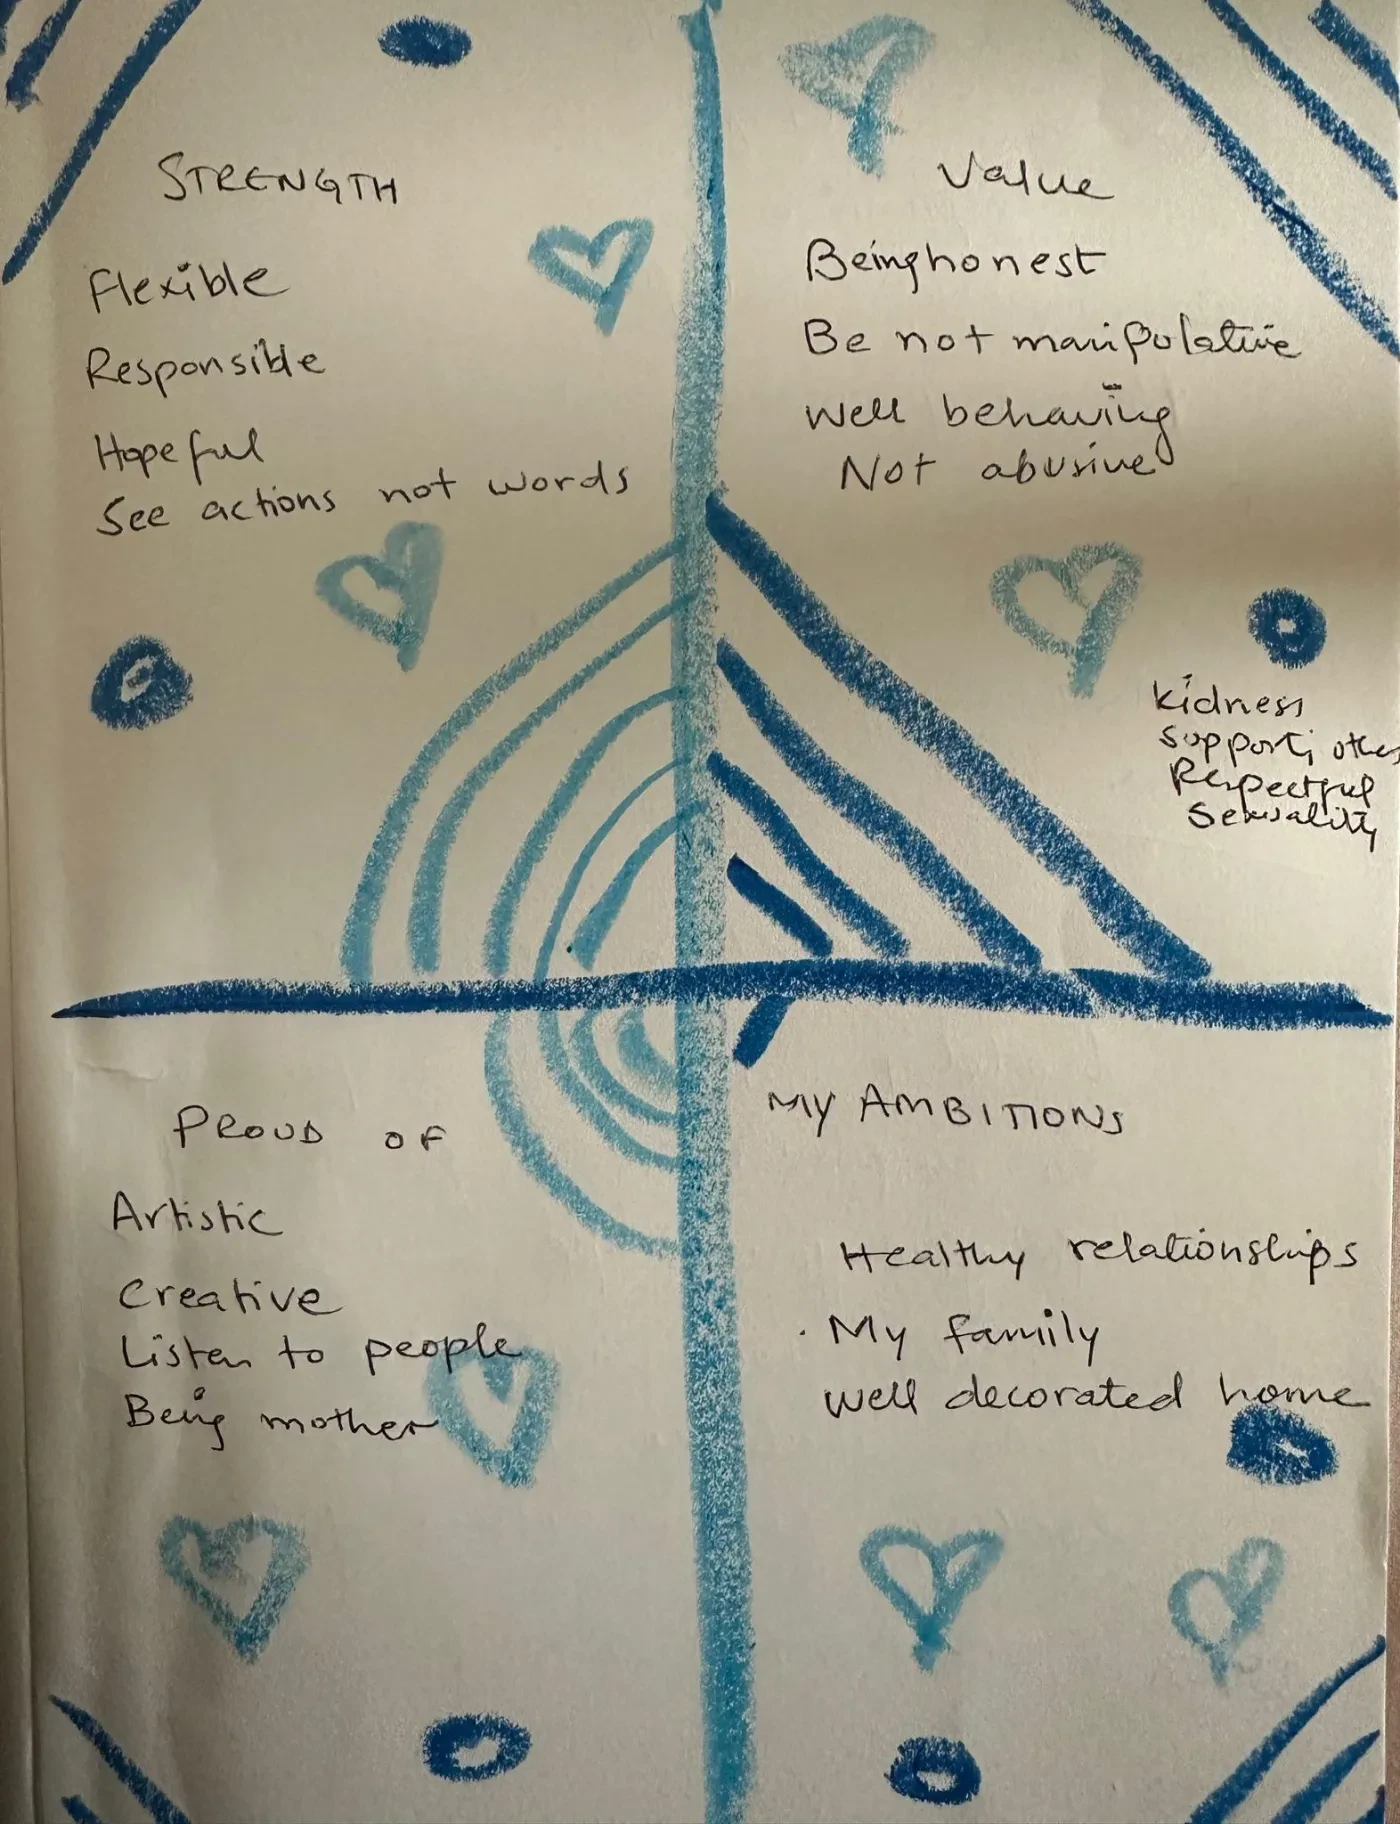 STRENGTH
Flexible
Responsible
Hopeful
See actions not words
Value
Being honest
Be not manipulative
Well behaving
Not abusive
Kidness
Support, others
Respectful
Sexuality
PROUD OF
Artistic
Creative
Listen to people
Being mother
MY AMBITIONS
Healthy relationships
. My family
Well decorated home